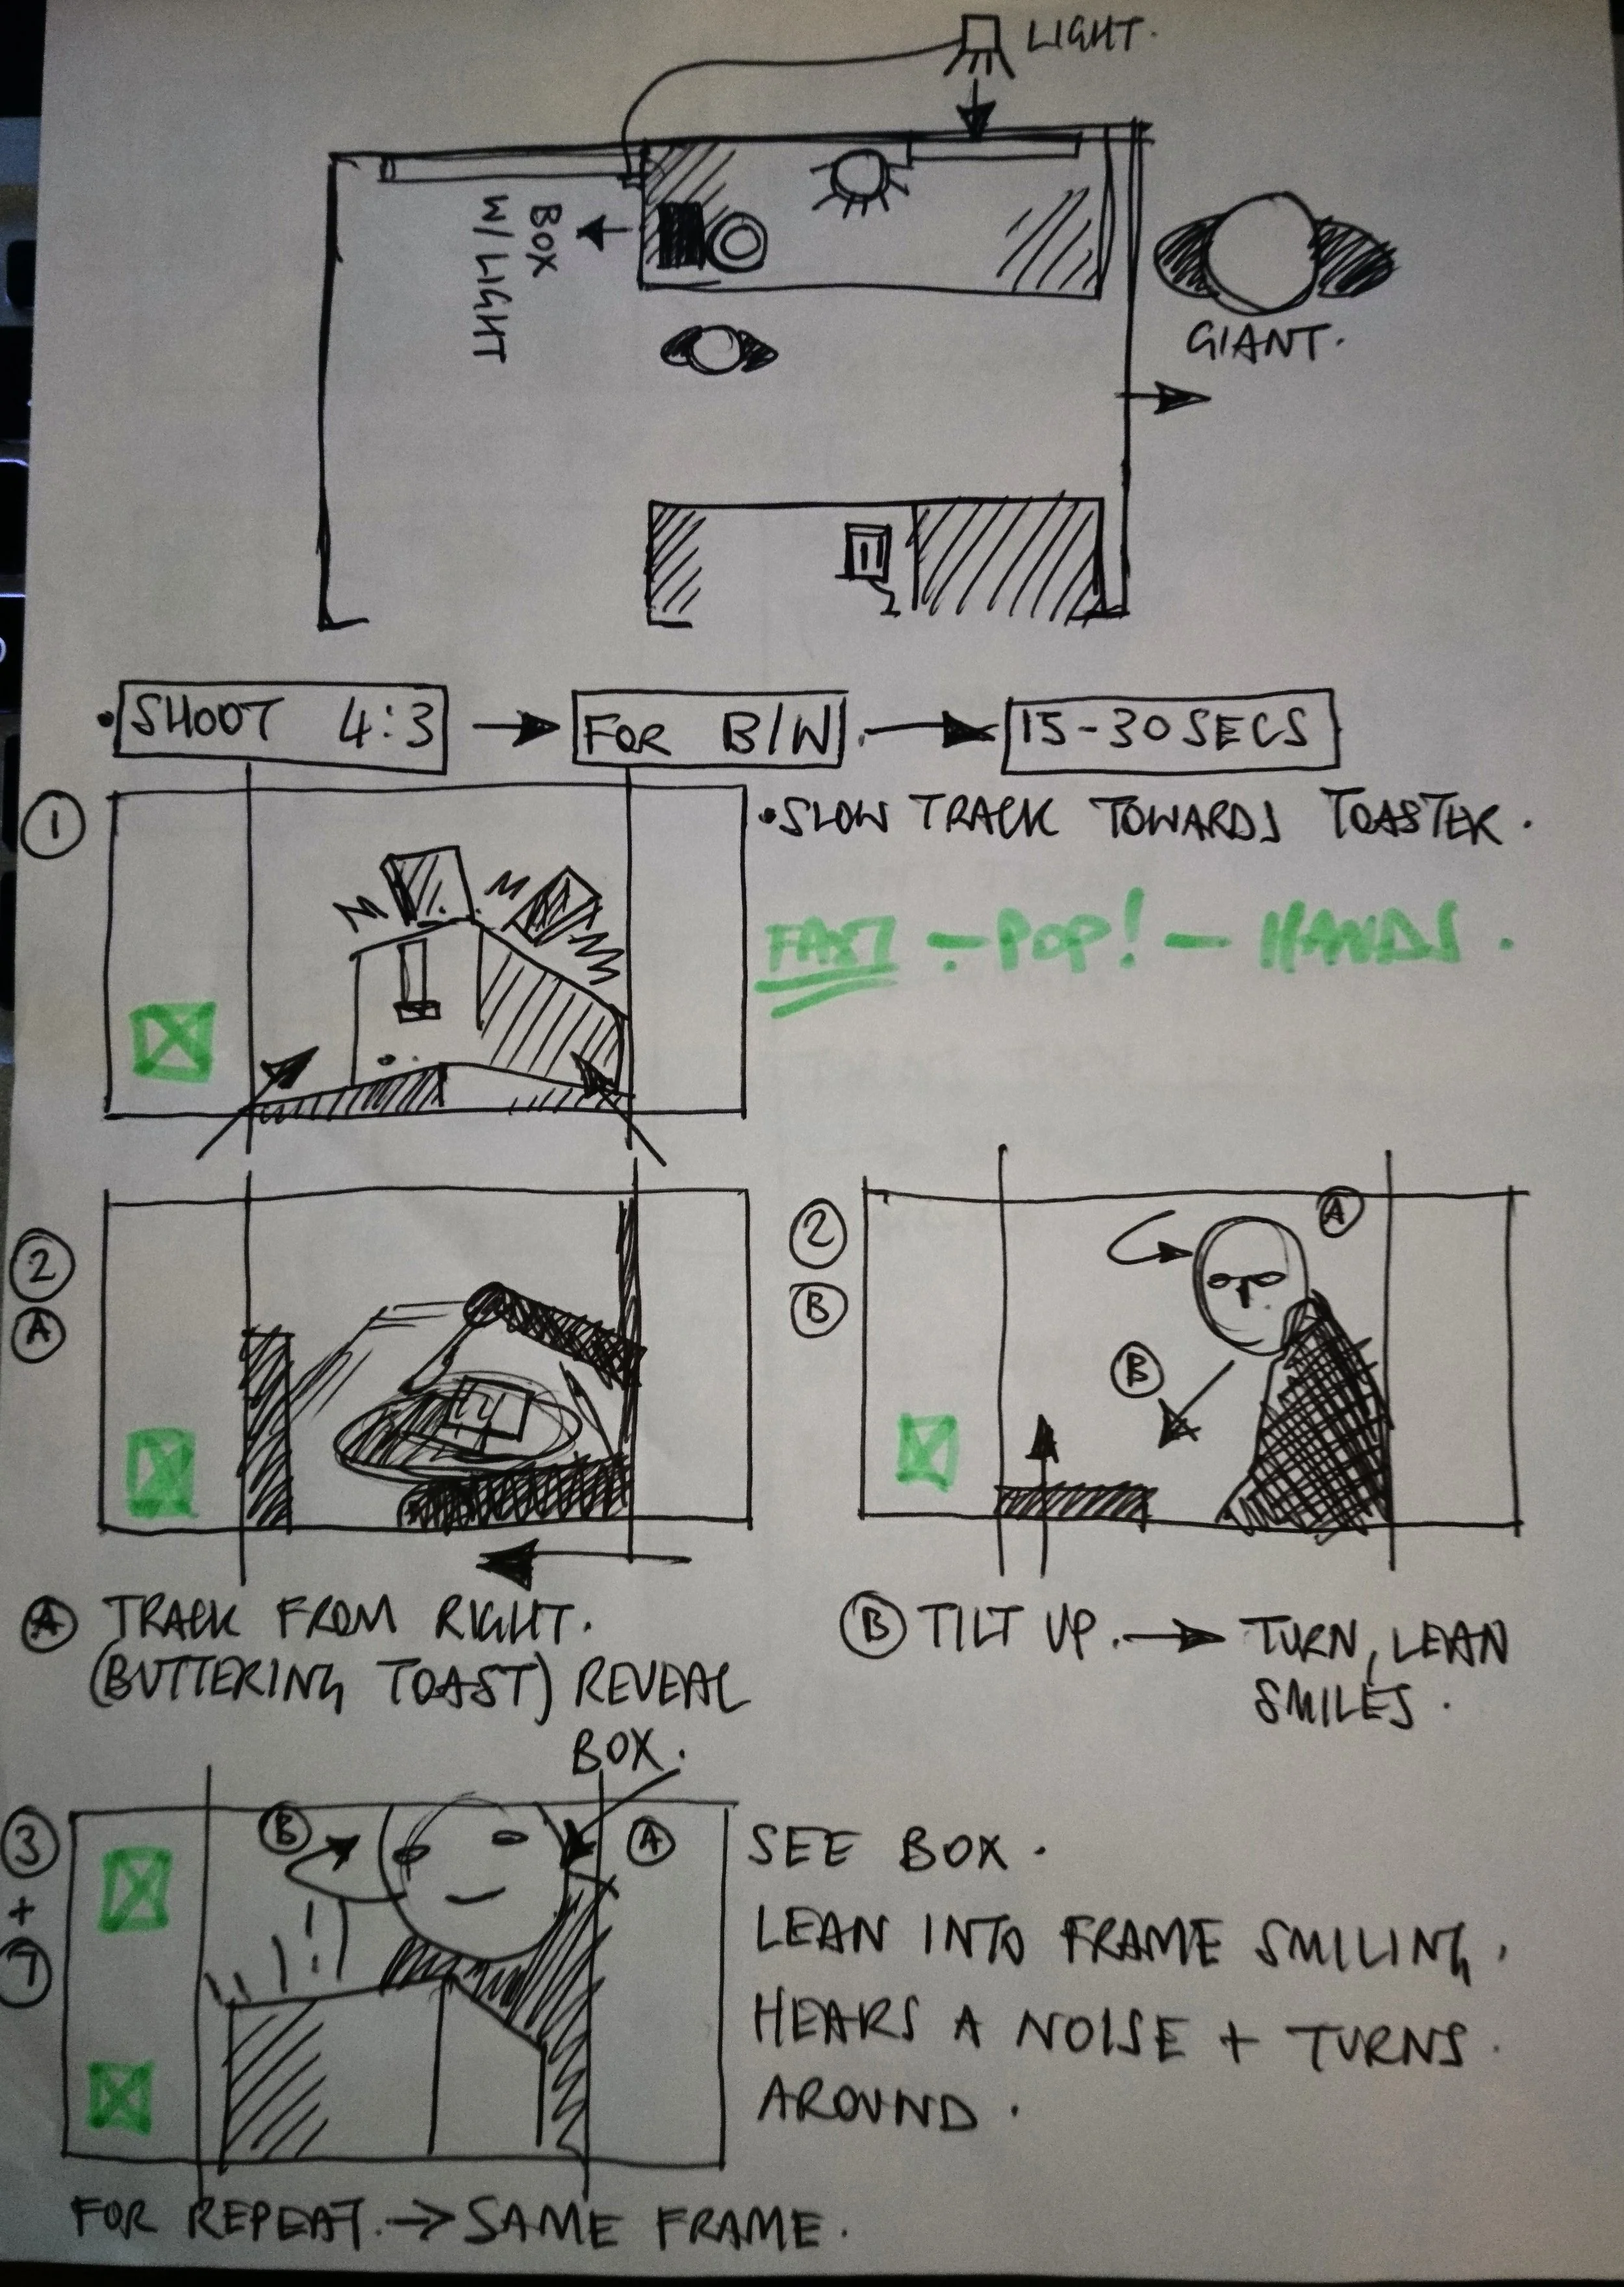 LIGHT.
BOX
W/LIGHT
GIANT.
•SHOOT 4:3 → FOR B/W. → 15-30SECS
1
•SLOW TRACK TOWARDS TOASTER.
FAST - POP! - HANDS.
2
A
2
B
A
B
A TRACK FROM RIGHT.
(BUTTERING TOAST) REVEAL
BOX.
B TILT UP. → TURN, LEAN
SMILES.
3
+
7
B
A
SEE BOX.
LEAN INTO FRAME SMILING.
HEARS A NOISE + TURNS
AROUND.
FOR REPEAT. → SAME FRAME.